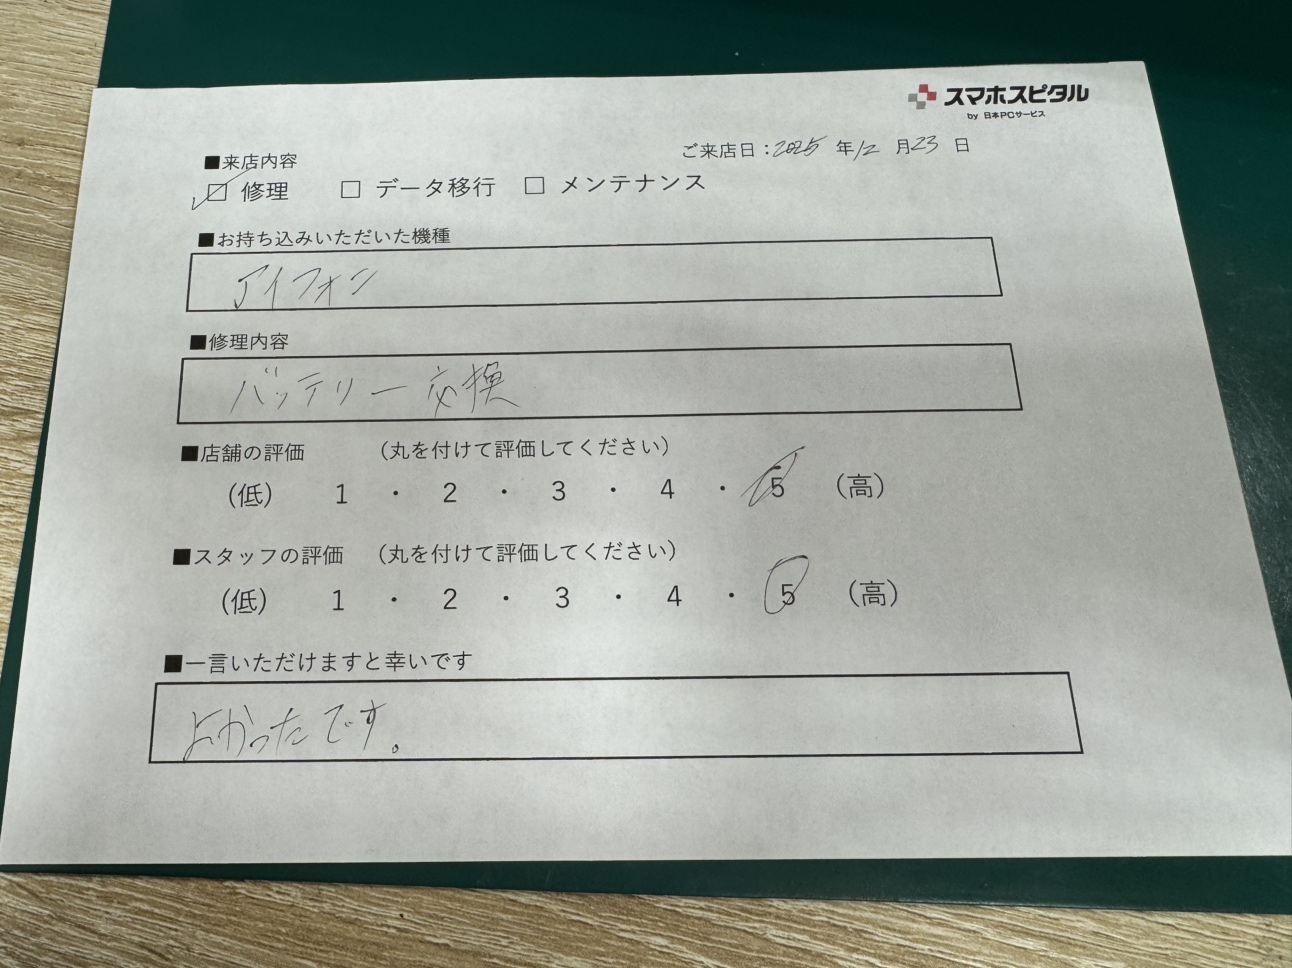 スマホスピタル
by 日本PCサービス
ご来店日：2025 年 12 月 23 日
■来店内容
☑ 修理 □ データ移行 □ メンテナンス
■お持ち込みいただいた機種
アイフォン
■修理内容
バッテリー交換
■店舗の評価 （丸を付けて評価してください）
（低） 1 ・ 2 ・ 3 ・ 4 ・ 5 （高）
■スタッフの評価 （丸を付けて評価してください）
（低） 1 ・ 2 ・ 3 ・ 4 ・ 5 （高）
■一言いただけますと幸いです
よかったです。